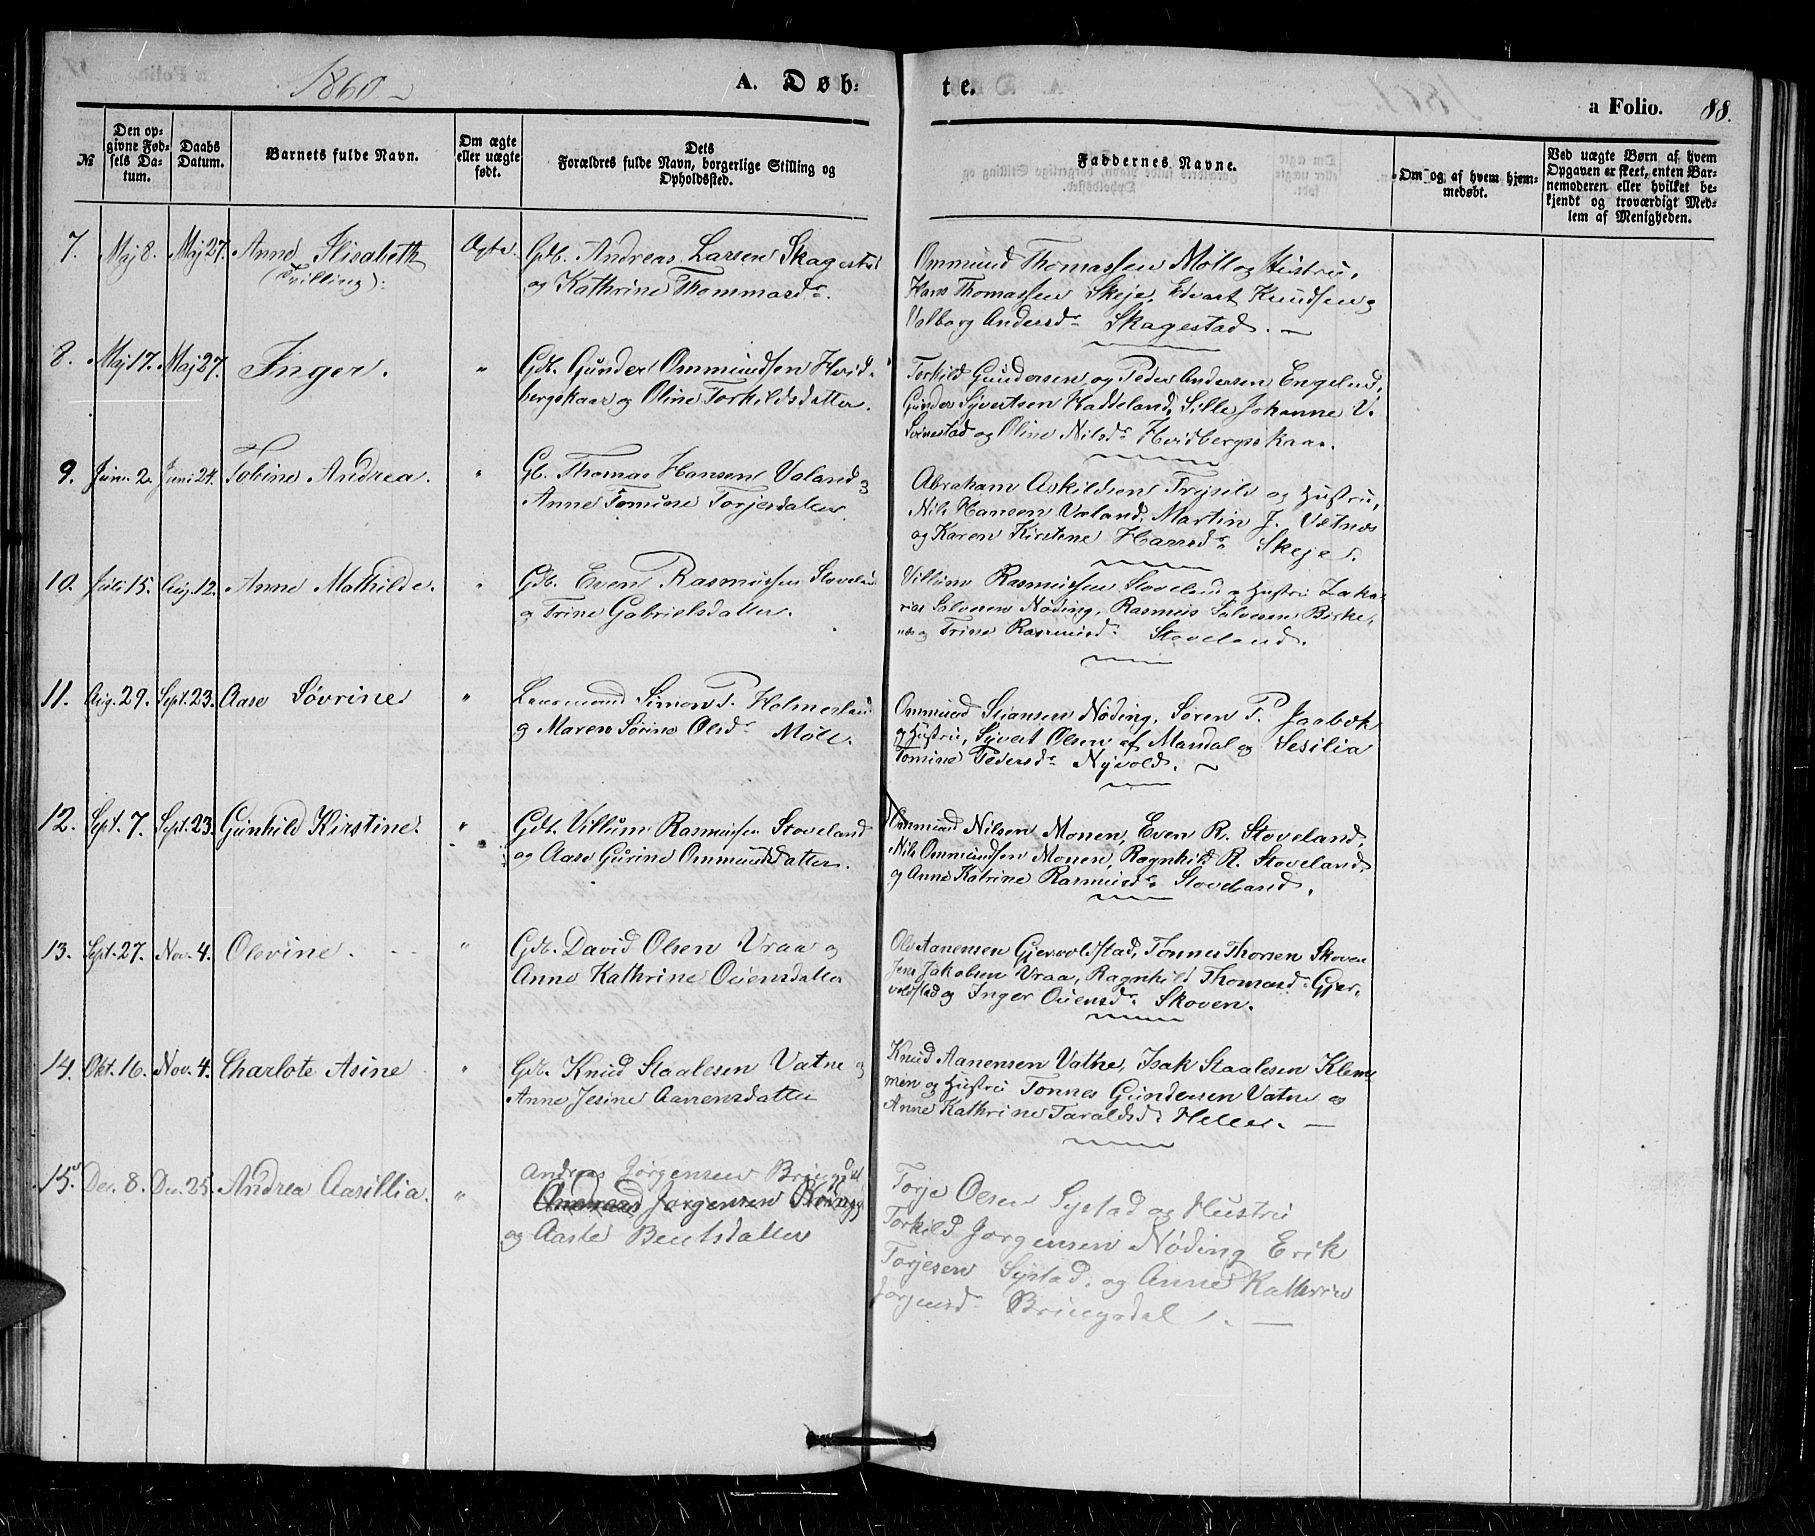 1860 A. Døb: te. a Folio. 88.
№
Den opgivne Fødsels Datum.
Daabs Datum.
Barnets fulde Navn.
Om ægte eller uægte født.
Dets Forældres fulde Navn, borgerlige Stilling og Opholdsted.
Faddernes Navne.
Om og af hvem hjemmedøbt.
Ved uægte Børn af hvem Opgaven er skeet, enten Barnemoderen eller hvilket bekjendt og troværdigt Medlem af Menigheden.
7. Maj 8. Maj 27. Anne Elisabeth Ægte. Gdb. Andreas Larsen Skagestad
(Tvilling): og Kathrine Thommasdr.
Ommund Thomassen Møll og Hustru,
Hans Thomassen Skeje, Edvart Knudsen og
Valborg Andersdr Skagestad. —
8. Maj 17. Maj 27. Inger. " Gdb. Gunder Ommundsen Hvid-
bergskaar og Oline Torkildsdatter.
Torkild Gundersen og Peder Andersen Engelud,
Gunder Syvertsen Kaddeland, Sille Johanne V.
Svinestad og Oline Nilsdr Hvidbergsskaar.
9. Juni 2. Juni 24. Tobine Andrea. " Gb. Thomas Hansen Valand og
Anne Tomine Torjesdatter.
Abraham Askildsen Trysils og Hustru,
Nils Hansen Valand, Martin J. Vatnes
og Karen Kirstine Hansdr Skeje.
10. Juli 15. Aug. 12. Anne Mathilde. " Gdb. Even Rasmussen Stoveland
og Trine Gabrielsdatter.
Villum Rasmussen Stoveland og Hustru Zaka-
rias Salvesen Nøding, Rasmus Salvesen Birke-
nes og Trine Rasmusdr Stoveland.
11. Aug. 29. Sept. 23. Aase Søvrine " Laasmand Simon T. Holmesland
og Maren Sørine Olsdr Møll.
Ommund Stiansen Nøding, Søren P. Jaabæk
og Hustru, Syvert Olsen af Mandal og Sesilia
Tomine Pedersdr Nyvold.
12. Sept. 7. Sept. 23. Gunhild Kirstine. " Gdb. Villum Rasmussen Stoveland
og Aase Gurine Ommundsdatter.
Ommund Nilsen Monen, Even R. Stoveland,
Nils Ommundsen Monen, Ragnhild R. Stoveland
og Anne Katrine Rasmusdr Stoveland.
13. Sept. 27. Nov. 4. Olevine. " Gdb. David Olsen Vraa og
Anne Kathrine Ouensdatter
Ole Aanensen Gjervoldstad, Tønnes Thorsen Skoven
Jens Jakobsen Vraa, Ragnhild Thomasd. Gjer-
voldstad og Inger Ouensdr Skoven.
14. Okt. 16. Nov. 4. Charlote Asine " Gdb. Knud Staalesen Vatne og
Anne Jesine Aanensdatter
Knud Aanensen Vatne, Isak Staalesen Klem-
men og Hustru Tønnes Gundersen Vatne og
Anne Kathrine Taraldsdr Helle. —
15. Dec. 8. Dec. 25. Andrea Aasillia. " Andreas Jørgensen Bringsdal
Andreas Jørgensen Bring
og Aaste Bentsdatter
Torje Olsen Systad og Hustru
Torkild Jørgensen Nøding Erik
Torjesen Systad, og Anne Kathrine
Jørgensdr Bringsdal. —